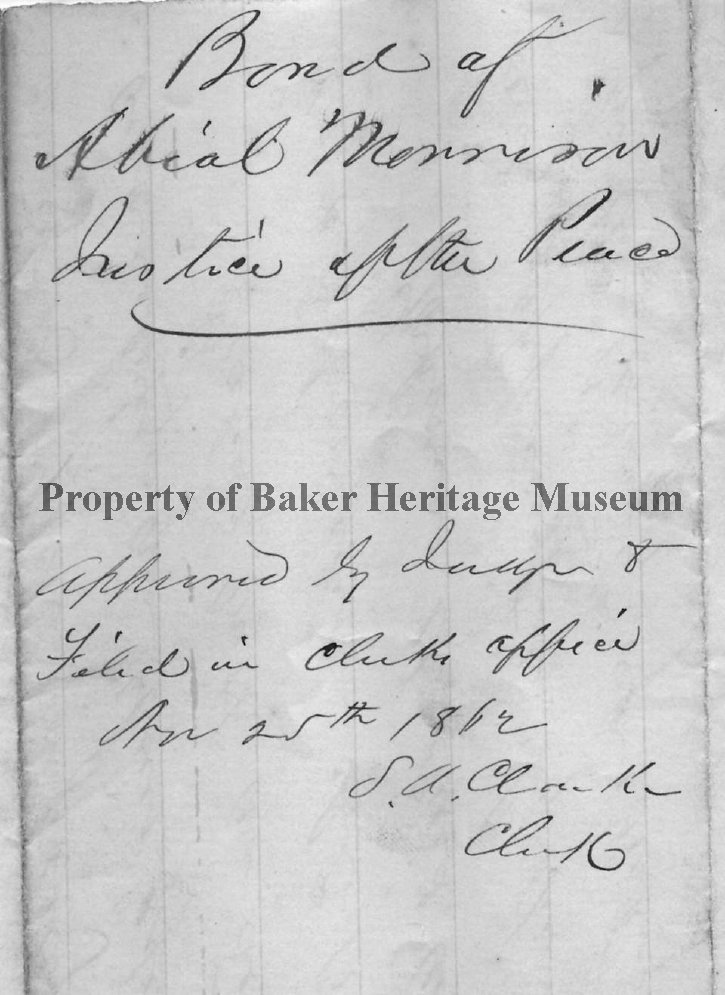 Bond of
Abial Morrison
Justice of the Peace
Property of Baker Heritage Museum
Approved by Judge &
Filed in Clerks office
25th 1862
S. A. Clarke
Clerk